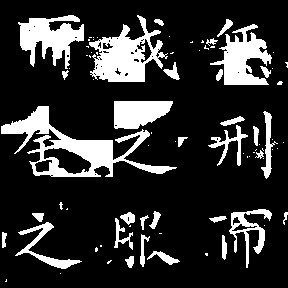 無刑而
伐之服
而舍之